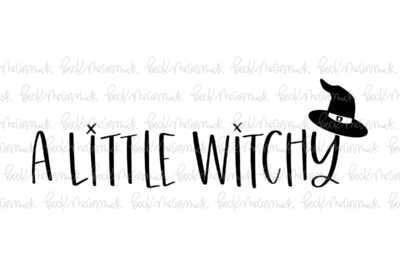 A LiTTLE WiTCHY